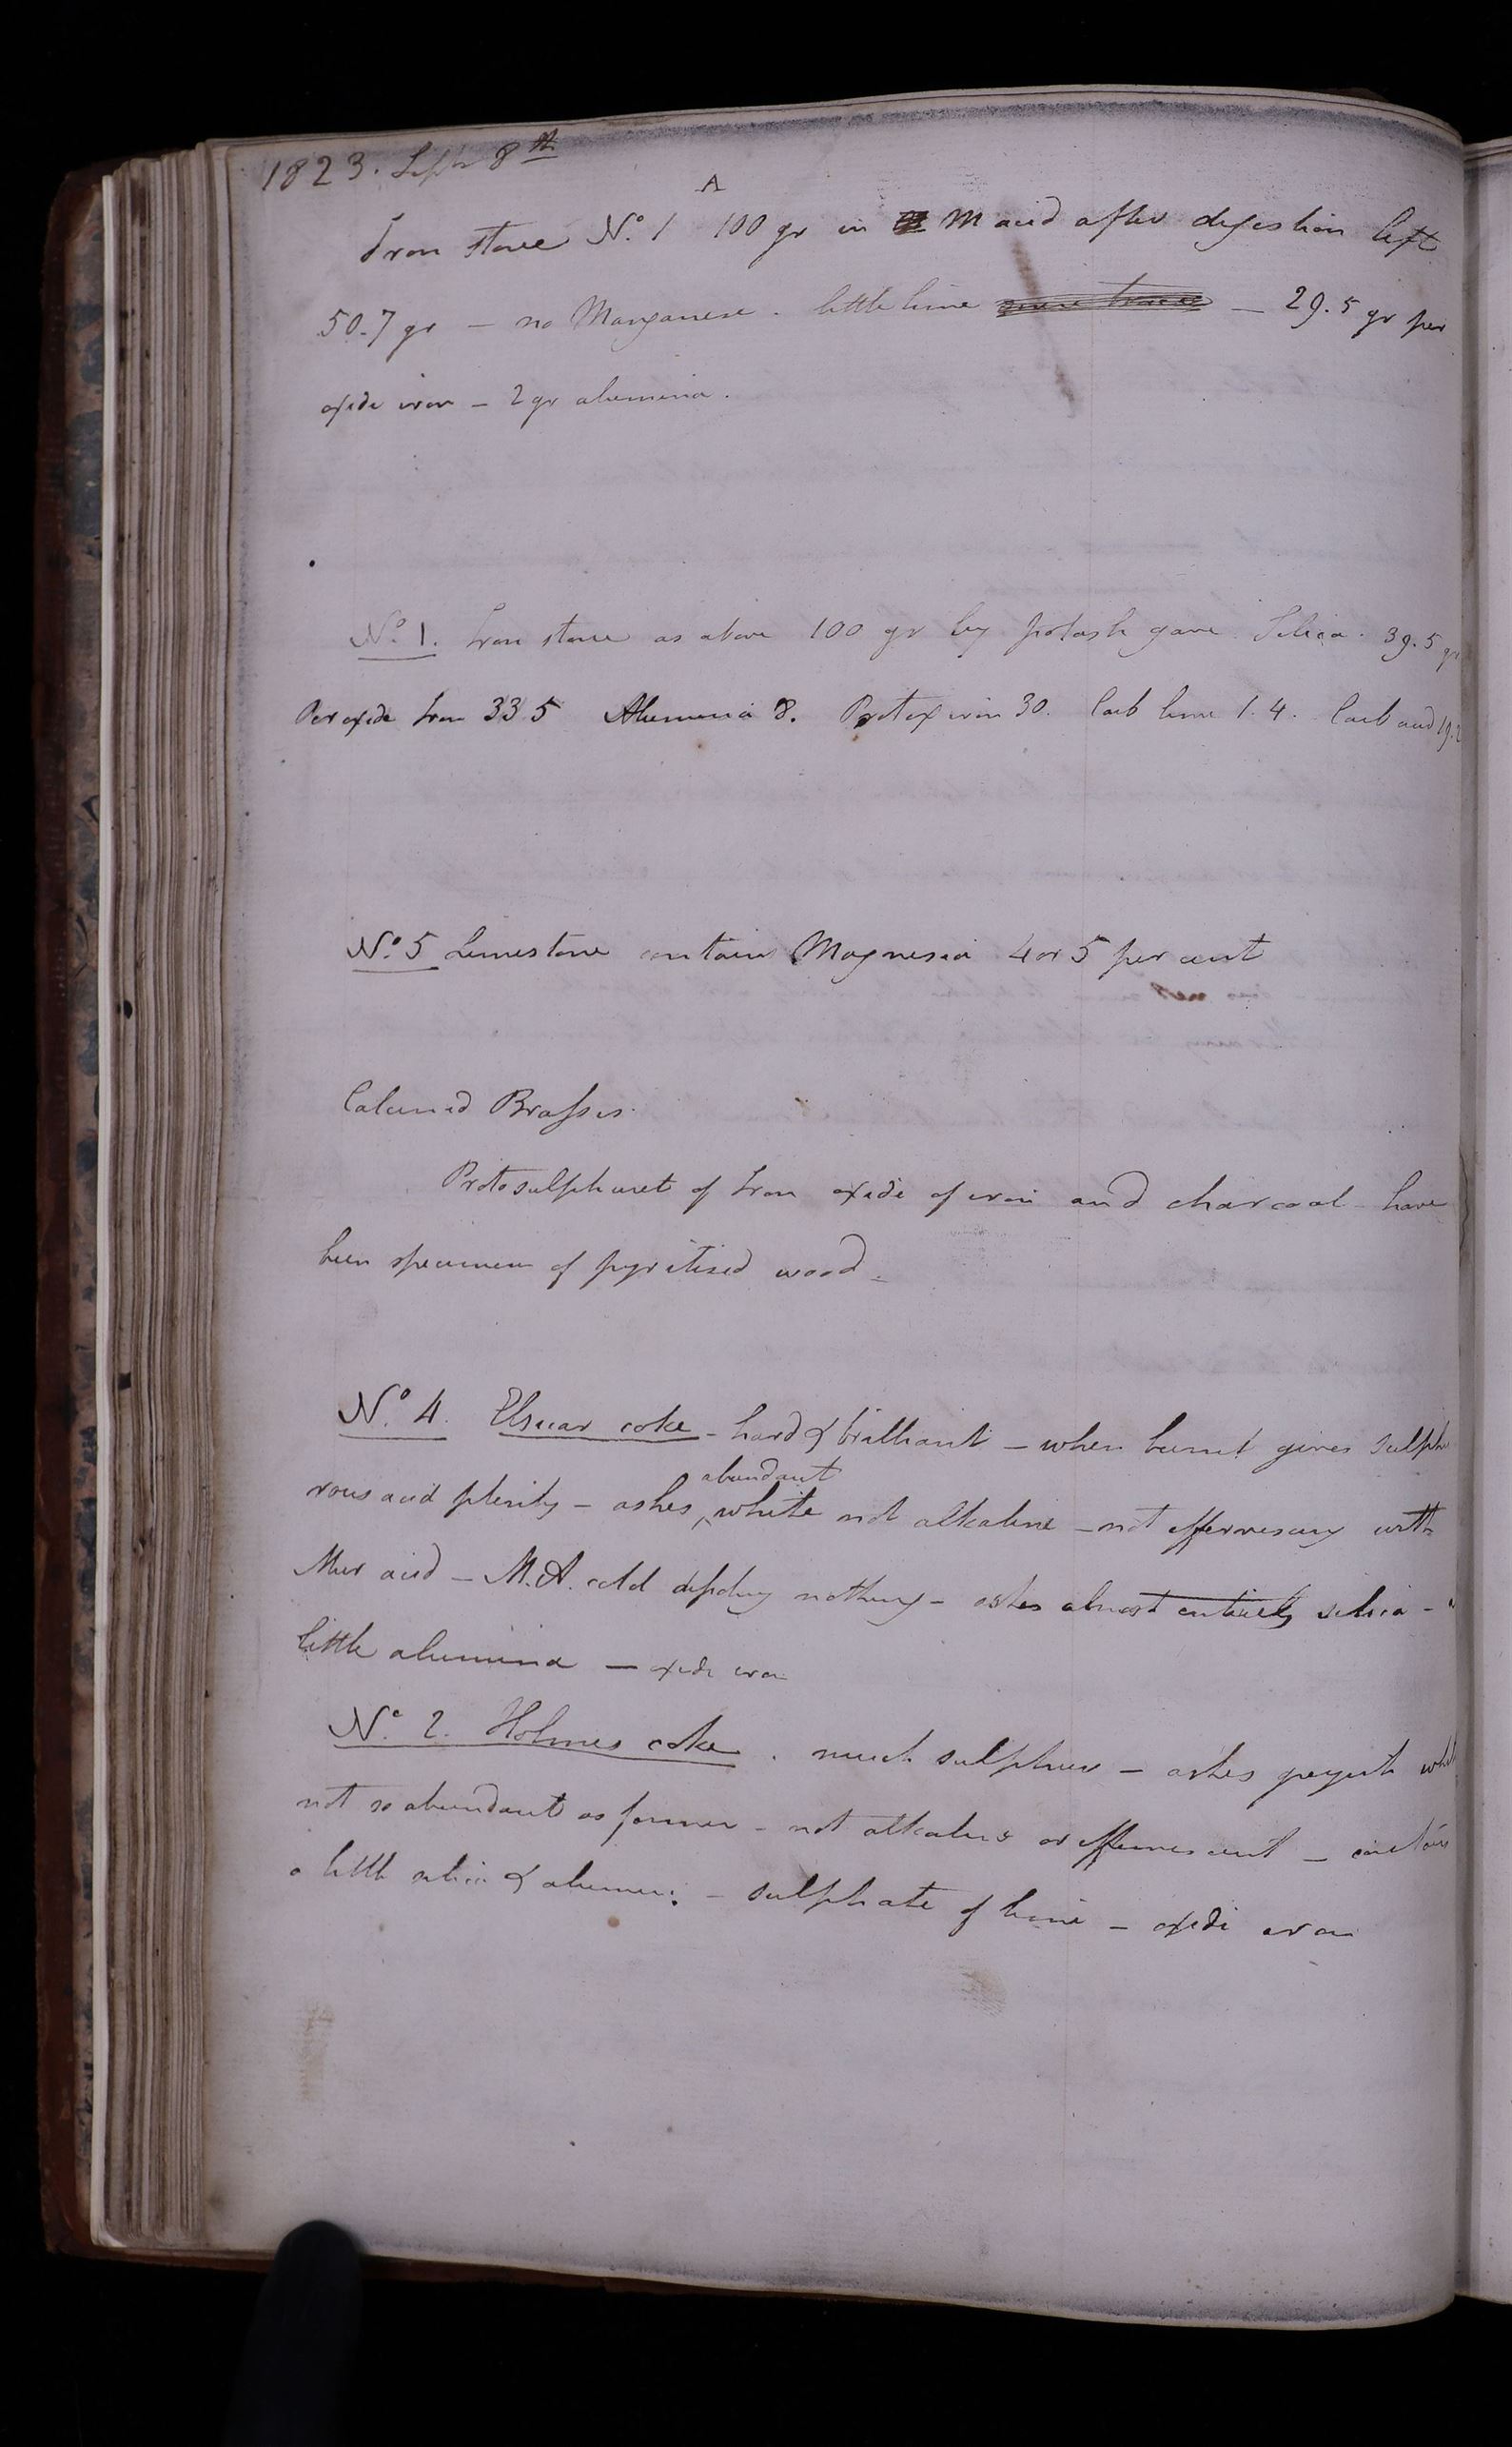 1823. Septr 8th
A
Iron stone No. 1 100 gr in M acid after digestion left
50.7 gr – no Manganese. little lime – 29.5 gr per
oxide iron – 2 gr alumina.
No. 1. Iron stone as above 100 gr by potash gave Silica. 39.5 gr
Peroxide Iron 33.5 Alumina 8. Protox iron 30. Carb lime 1.4. Carb acid 19.2
No. 5 Limestone contains Magnesia 4 or 5 per cent
Calcined Brasses.
Protosulphuret of Iron oxide of iron and charcoal have
been specimen of pyritised wood.
No. 4. Elsecar coke – hard & brilliant – when burnt gives sulphu
abundant
rous acid plenty – ashes ^ white not alkaline – not effervescing with
Mur acid – M.A. cold dissolving nothing – ashes almost entirely silica – a
little alumina – oxide iron
No. 2. Holmes coke. much sulphur – ashes greyish white
not so abundant as former – not alkaline or effervescent – contains
a little silica & alumina – sulphate of lime – oxide iron